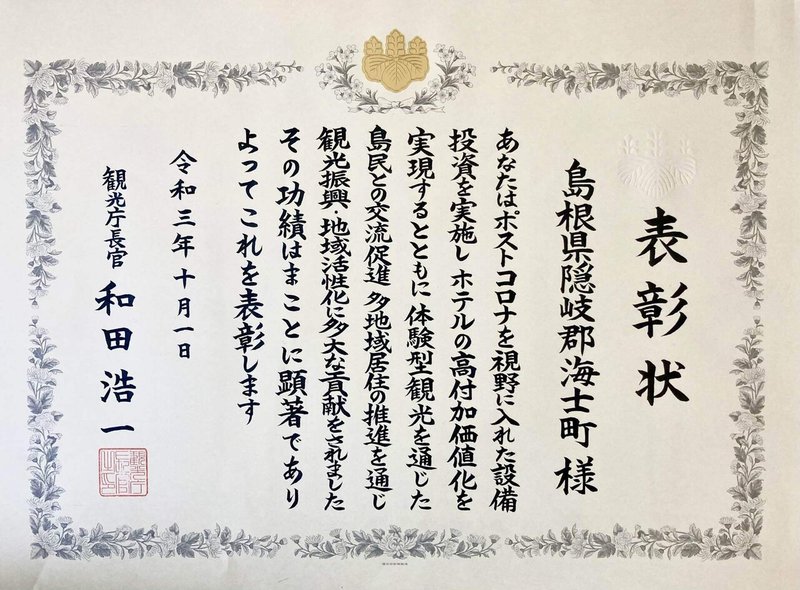 表彰状
島根県隠岐郡海士町 様
あなたはポストコロナを視野に入れた設備
投資を実施し ホテルの高付加価値化を
実現するとともに 体験型観光を通じた
島民との交流促進 多地域居住の推進を通じ
観光振興・地域活性化に多大な貢献をされました
その功績はまことに顕著であり
よってこれを表彰します
令和三年十月一日
観光庁長官 和田浩一